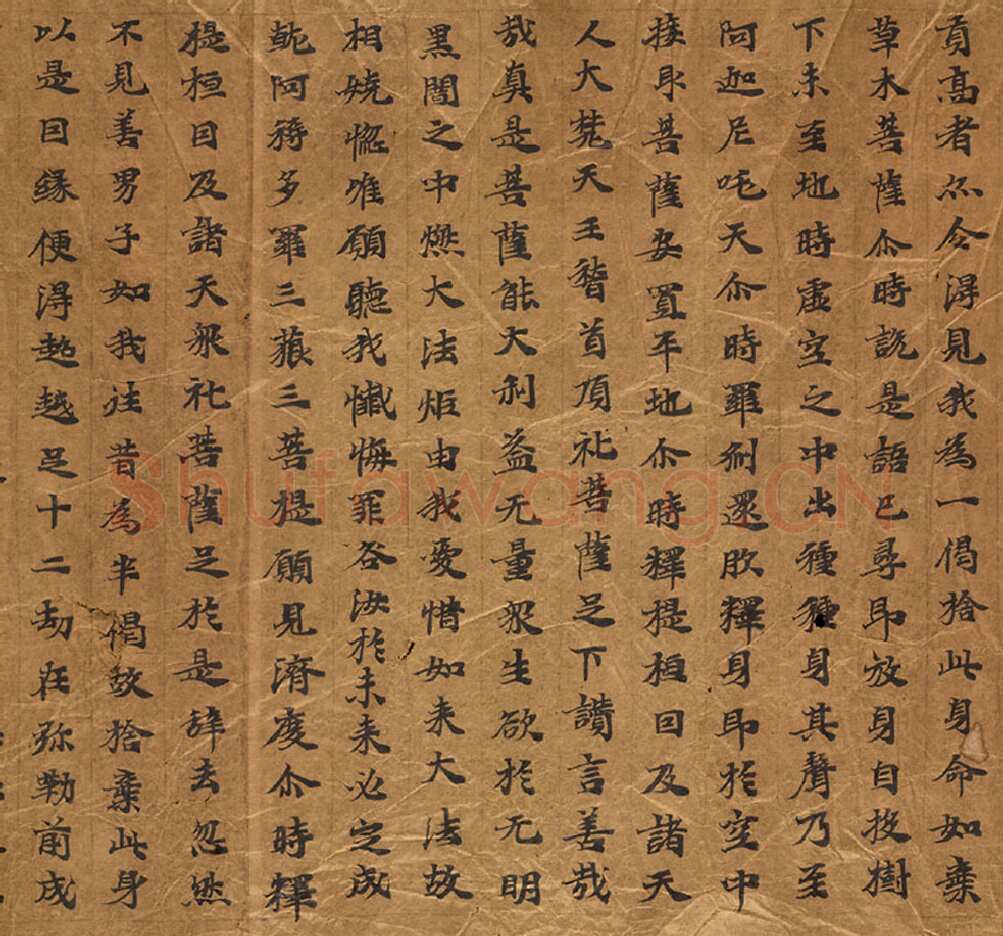 貢高者亦令得見我為一偈捨此身命如棄
草木菩薩尒時說是語已尋即放身自投樹
下未至地時虛空之中出種種身其聲乃至
阿迦尼吒天尒時羅剎還復釋身即於空中
接取菩薩安置平地尒時釋提桓因及諸天
人大梵天王稽首頂礼菩薩足下讚言善哉
哉真是菩薩能大利益无量眾生欲於无明
黑闇之中燃大法炬由我愛惜如來大法故
相嬈惱唯願聽我懺悔罪咎汝於未來必定成
就阿耨多羅三藐三菩提願見濟度尒時釋
提桓因及諸天眾礼菩薩足於是辞去忽然
不見善男子如我往昔為半偈故捨棄此身
以是因緣便得超越足十二劫在弥勒前成
Shufawang.CN